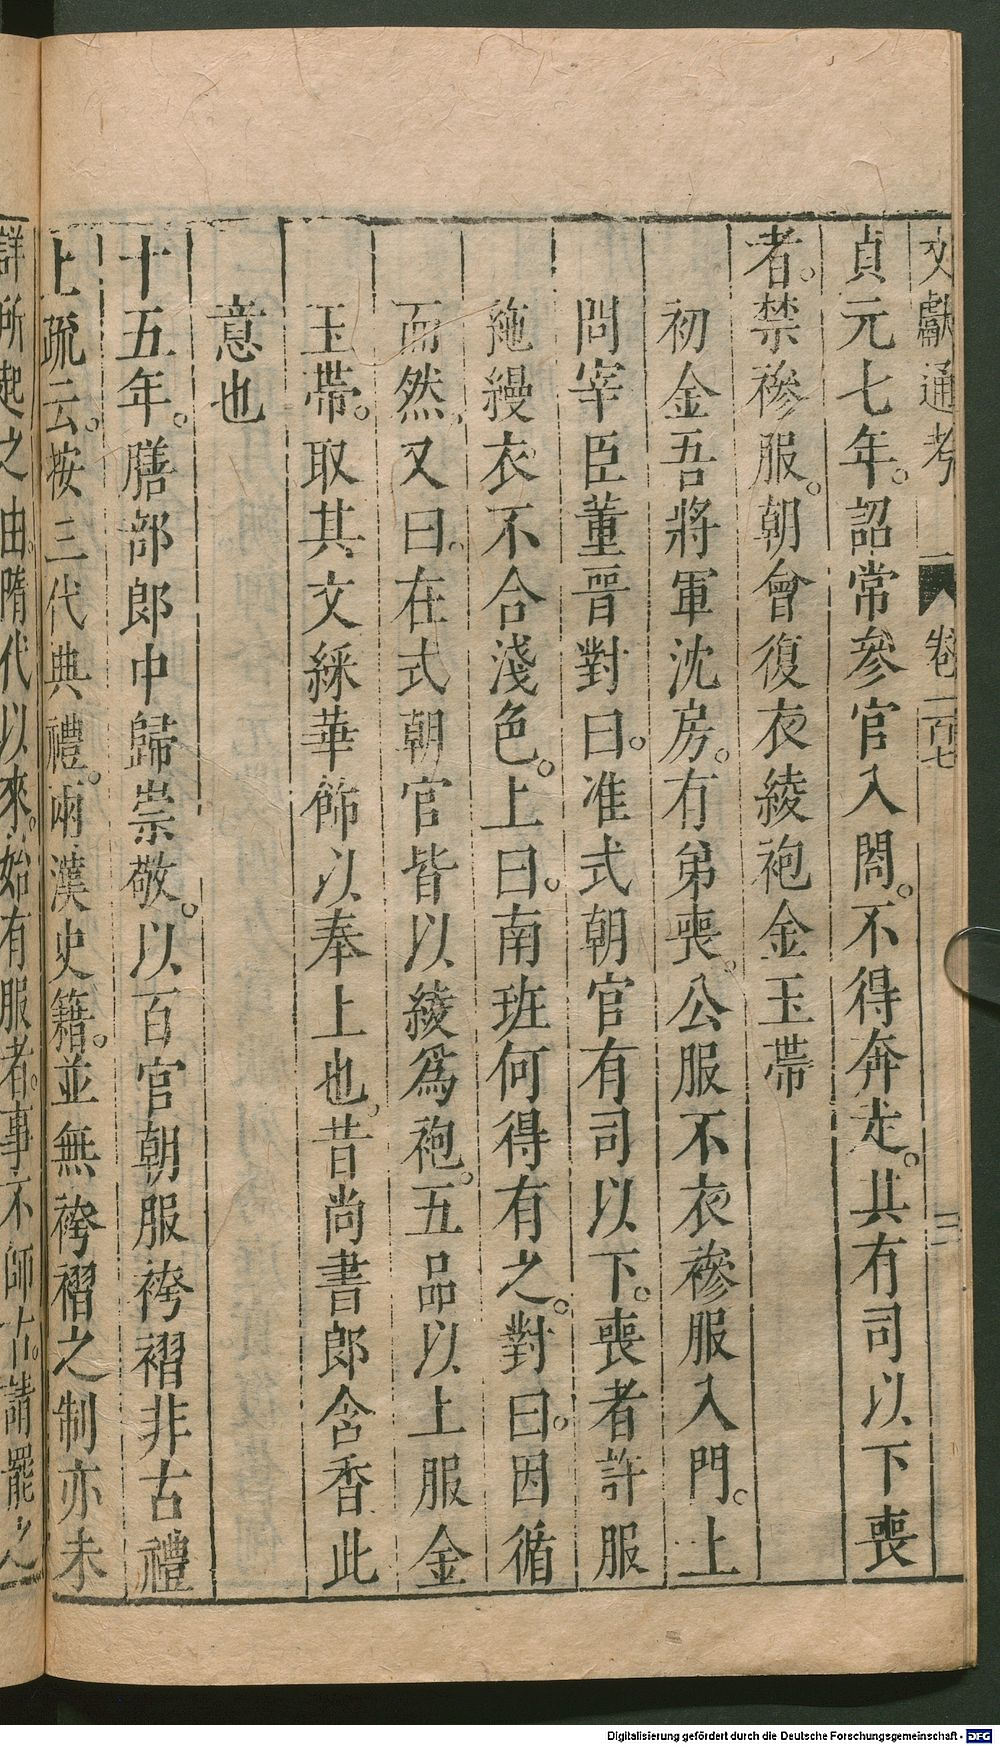 文獻通考 卷一百七 三
貞元七年。詔常參官入閤。不得奔走。其有司以下喪
者。禁襂服。朝會復衣綾袍金玉帶
初金吾將軍沈房。有弟喪。公服不衣襂服入門。上
問宰臣董晉對曰。准式朝官有司以下。喪者許服
絁縵衣不合淺色。上曰。南班何得有之。對曰。因循
而然。又曰。在式朝官皆以綾爲袍。五品以上服金
玉帶。取其文綵華飾以奉上也。昔尚書郎含香此
意也
十五年。膳部郎中歸崇敬。以百官朝服袴褶非古禮
上疏云。按三代典禮。兩漢史籍。並無袴褶之制亦未
詳所起之由。隋代以來。始有服者。事不師古。請罷之
Digitalisierung gefördert durch die Deutsche Forschungsgemeinschaft - DFG